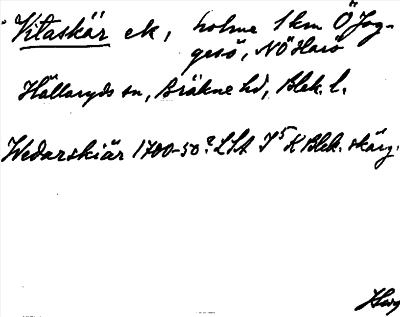 Vitaskär ek, holme 1 km Ö Jog-
gesö, NÖ Harö
Hällaryds sn, Bräkne hd, Blek. l.
Wedarskiär 1700-50? LSA I5 K Blek. skärg.